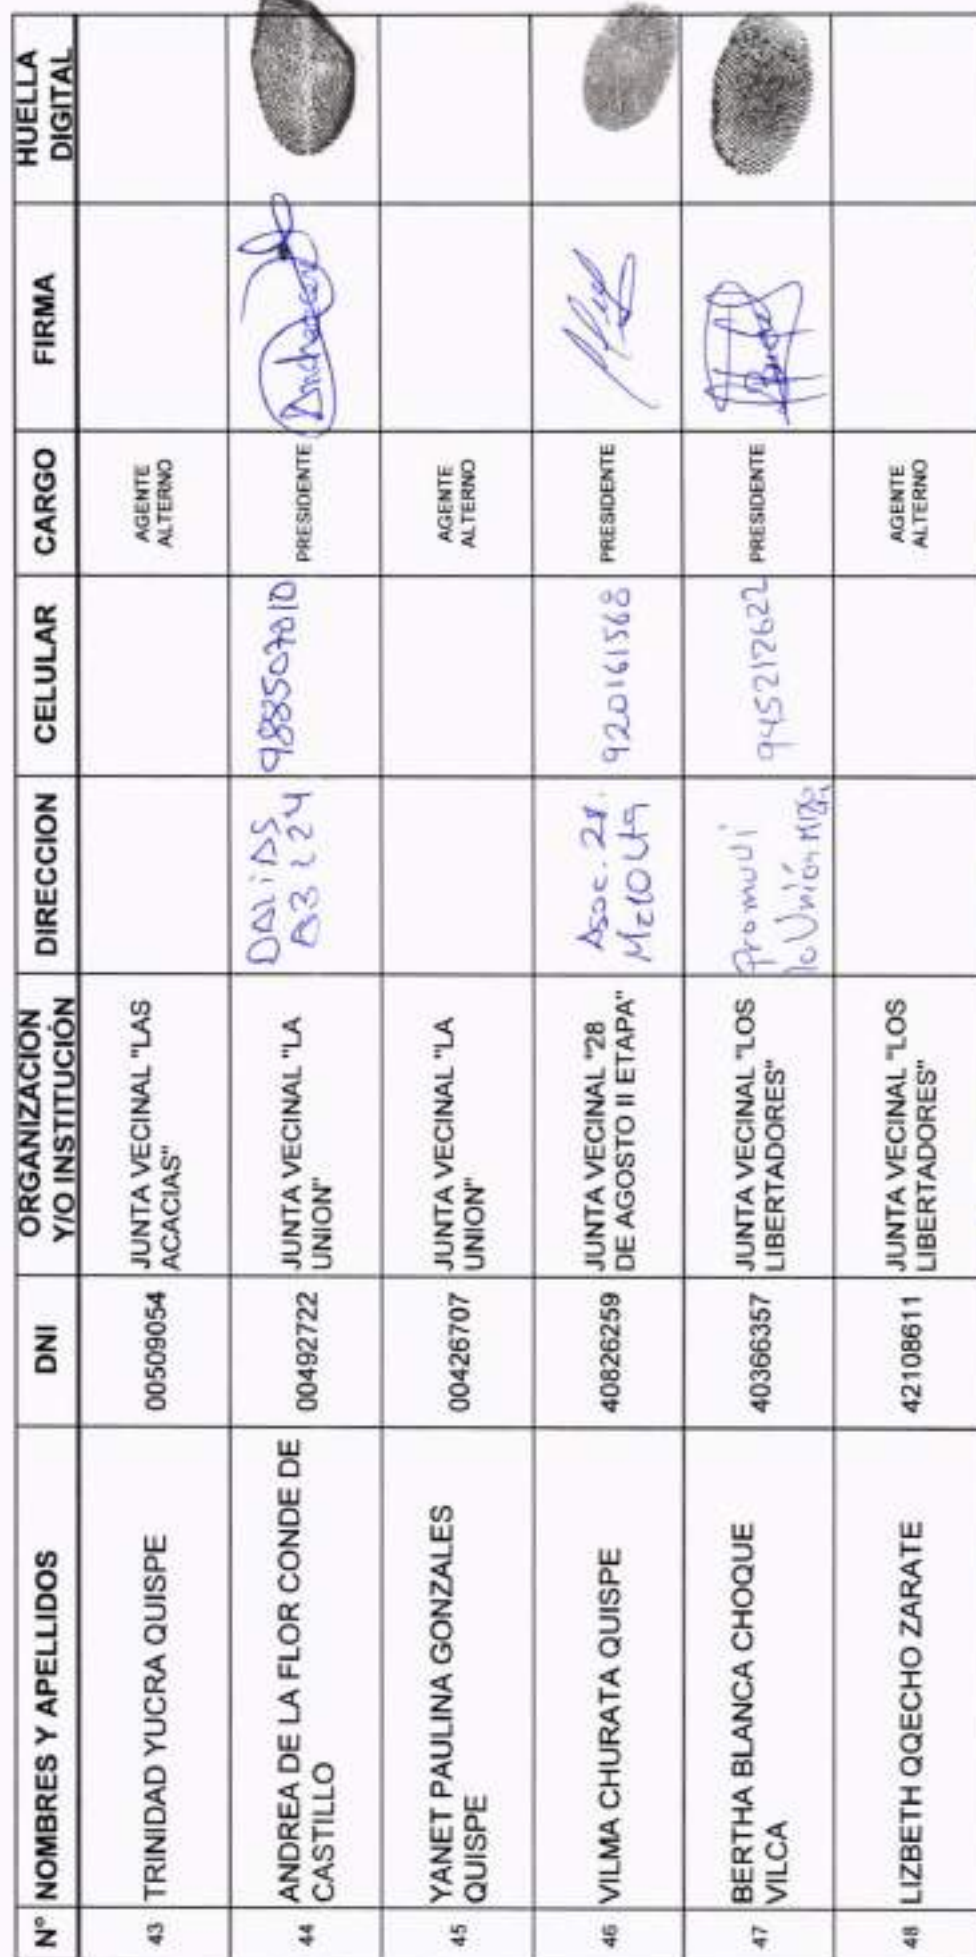 N° NOMBRES Y APELLIDOS DNI ORGANIZACION Y/O INSTITUCIÓN DIRECCION CELULAR CARGO FIRMA HUELLA DIGITAL
43 TRINIDAD YUCRA QUISPE 00509054 JUNTA VECINAL "LAS ACACIAS" AGENTE ALTERNO
44 ANDREA DE LA FLOR CONDE DE CASTILLO 00492722 JUNTA VECINAL "LA UNION" 988507010 PRESIDENTE
45 YANET PAULINA GONZALES QUISPE 00426707 JUNTA VECINAL "LA UNION" AGENTE ALTERNO
46 VILMA CHURATA QUISPE 40826259 JUNTA VECINAL "28 DE AGOSTO II ETAPA" Asoc. 28 920161568 PRESIDENTE
47 BERTHA BLANCA CHOQUE VILCA 40366357 JUNTA VECINAL "LOS LIBERTADORES" Promuvi la Unión 945212622 PRESIDENTE
48 LIZBETH QQECHO ZARATE 42108611 JUNTA VECINAL "LOS LIBERTADORES" AGENTE ALTERNO